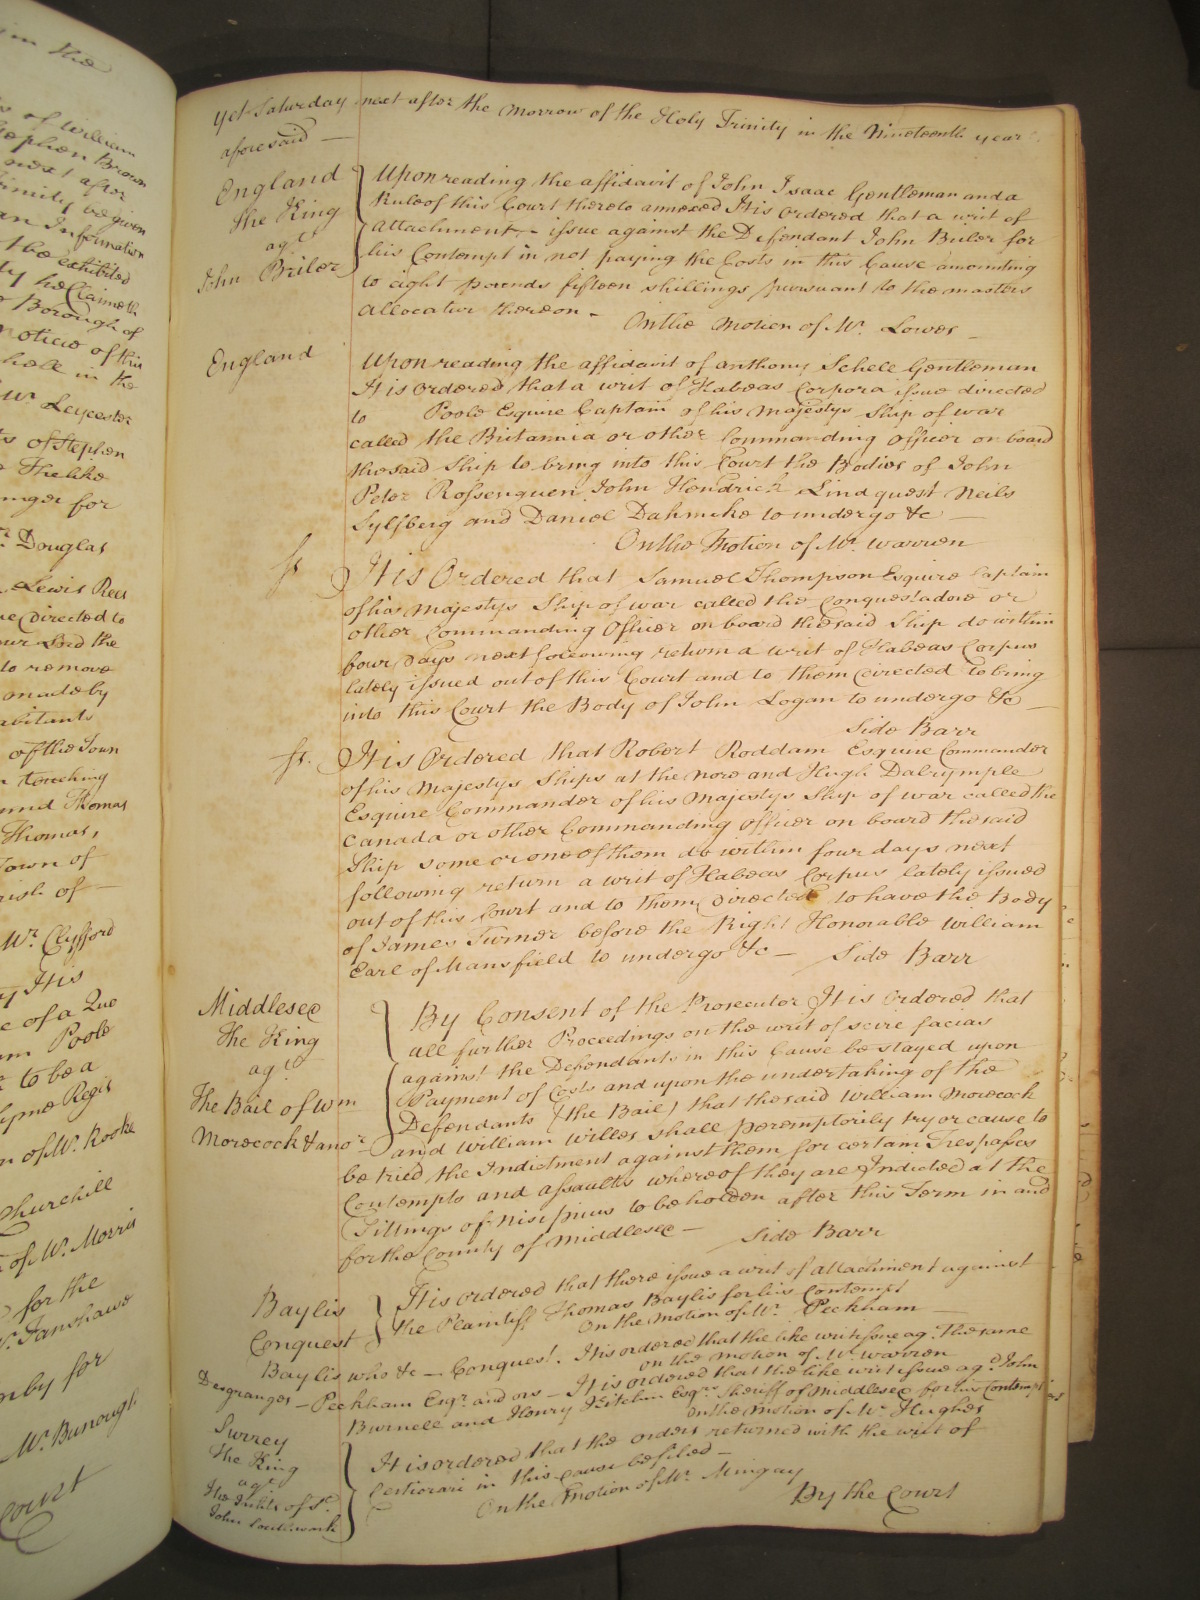 yet Saturday next after the morrow of the Holy Trinity in the Nineteenth year
aforesaid —
England
The King
agt
John Briler
Upon reading the affidavit of John Isaac Gentleman and a
Rule of this Court thereto annexed It is ordered that a writ of
attachment issue against the Defendant John Briler for
his Contempt in not paying the Costs in this Cause amounting
to eight pounds fifteen shillings pursuant to the masters
allocatur thereon -
On the Motion of Mr. Lowes
England
Upon reading the affidavit of anthony Schele Gentleman
It is ordered that a writ of Habeas Corpora issue directed
to Poole Esquire Captain of his Majestys Ship of war
called the Britannia or other Commanding Officer on board
the said Ship to bring into this Court the Bodies of John
Peter Rossenquen John Hendrick Lindquest Neils
Sylfberg and Daniel Dahmcke to undergo &c —
On the Motion of Mr. Warren
ss
It is Ordered that Samuel Thompson Esquire Captain
of his Majestys Ship of war called the Conquestadore or
other Commanding Officer on board the said Ship do within
four days next following return a writ of Habeas Corpus
lately issued out of this Court and to them directed to bring
into this Court the Body of John Logan to undergo &c —
Side Barr
ss.
It is Ordered that Robert Roddam Esquire Commander
of his Majestys Ships at the nore and Hugh Dalrymple
Esquire Commander of his Majestys Ship of war called the
Canada or other Commanding Officer on board the said
Ship some or one of them do within four days next
following return a writ of Habeas Corpus lately issued
out of this Court and to them directed to have the Body
of James Turner before the Right Honorable William
Earl of Mansfield to undergo &c — Side Barr
Middlesex
The King
agt
The Bail of Wm
Morecock & anor
By Consent of the Prosecutor It is ordered that
all further Proceedings on the writ of scire facias
against the Defendants in this Cause be stayed upon
Payment of Costs and upon the undertaking of the
Defendants (the Bail) that the said William Morecock
and William Willes shall peremptorily try or cause to
be tried the Indictment against them for certain Trespasses
Contempts and assaults whereof they are Indicted at the
Sittings of nisi prius to be holden after this Term in and
for the County of Middlesex — Side Barr
Baylis
Conquest
It is ordered that there issue a writ of attachment against
the Plaintiff Thomas Baylis for his Contempt
On the Motion of Mr. Peckham —
Baylis who &c — Conquest. It is ordered that the like writ issue agt. the same
on the motion of Mr. Warren
Desgranges — Peckham Esqr. and ors — It is ordered that the like writ issue agt John
Burnell and Henry Kitchin Esqrs Sheriff of Middlesex for his Contempt
On the Motion of Mr. Hughes
Surrey
The King
agt
The Inhts of St.
John Southwark
It is ordered that the orders returned with the writ of
Certiorari in this cause be filed —
On the Motion of Mr. Mingay
By the Court
in the
of William
Stephen Brown
next after
Trinity be given
an Information
t be exhibited
ty he Claimeth
Borough of
notice of this
hall in the
Mr Leycester
of Stephen
The like
nger for
Douglas
Lewis Rees
directed to
our and the
to remove
made by
abitants
of the Town
touching
and Thomas
Thomas,
Town of
rish of —
Mr. Clyfford
It is
e of a Quo
am Poole
to be a
yme Regis
n of Mr. Rooke
Churchill
of Mr. Morris
for the
Fanshawe
nby for
Mr. Burrough
Court